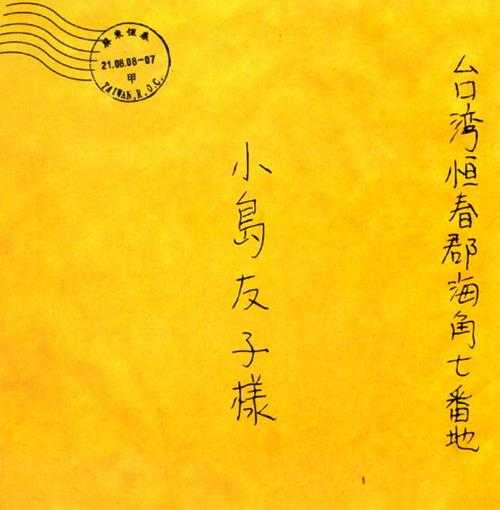 台湾恒春郡海角七番地
小島友子様
屏東恆春
21.08.08-07
甲
TAIWAN.R.O.C.